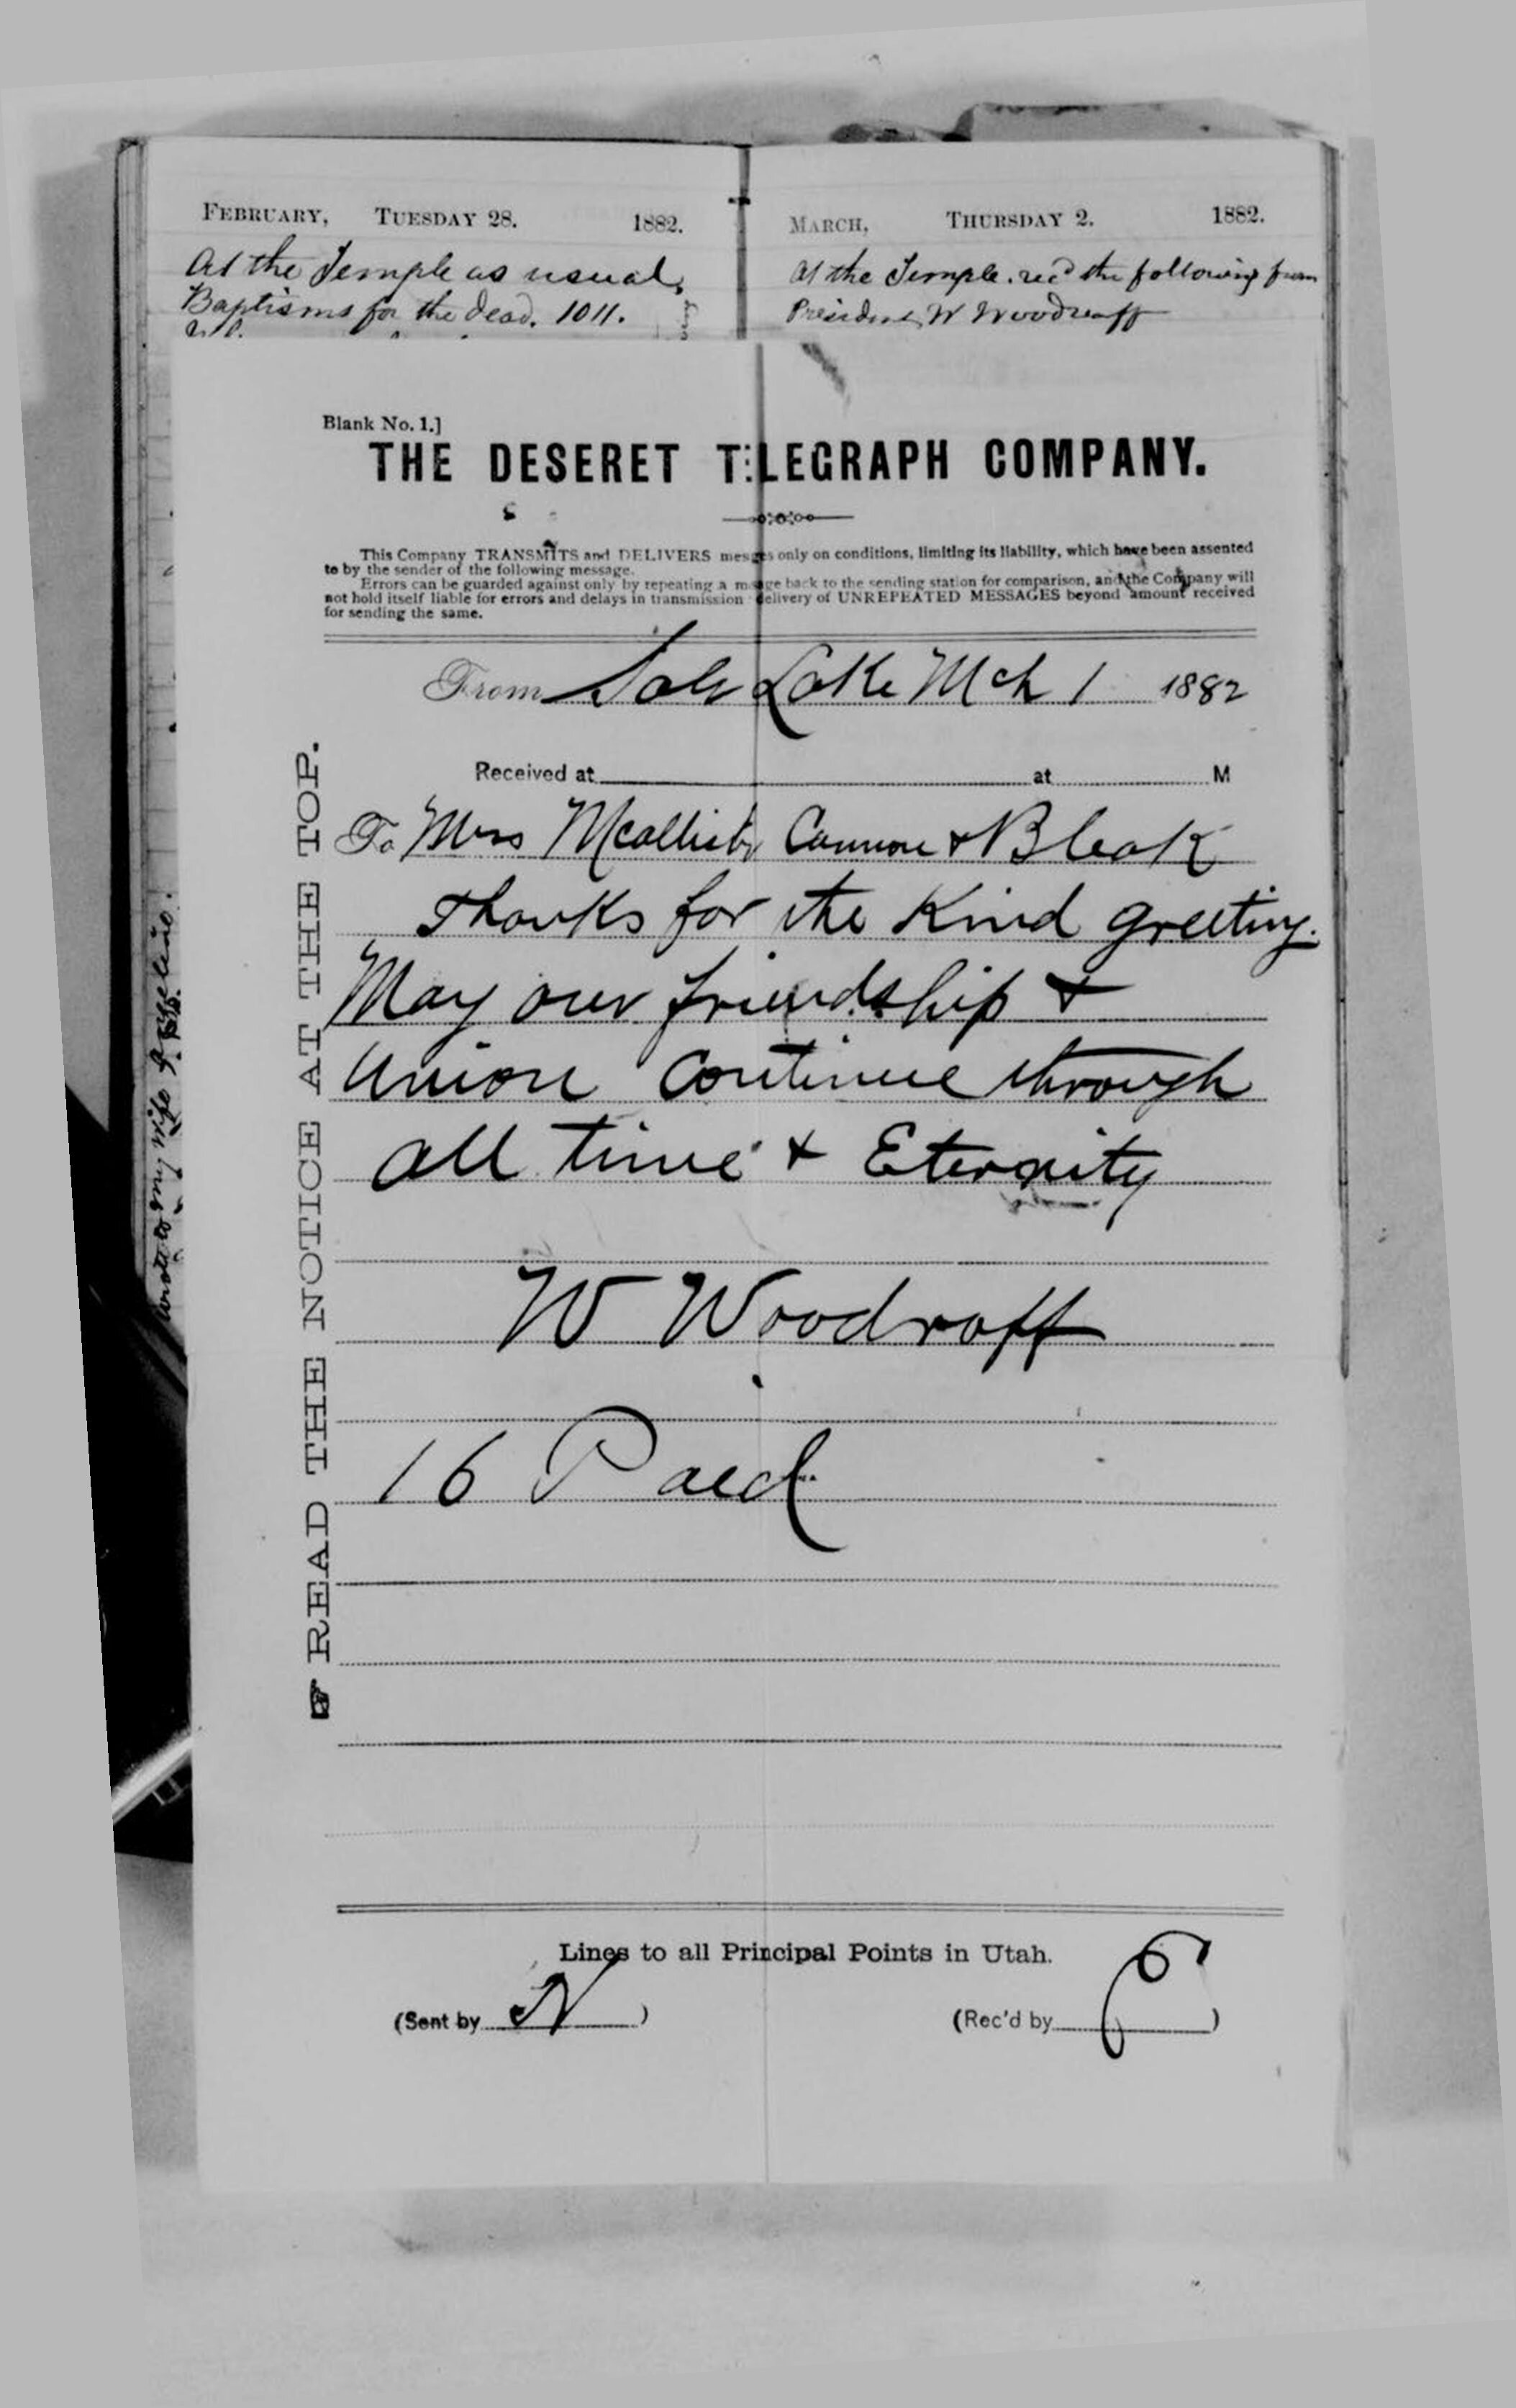 FEBRUARY, TUESDAY 28. 1882.
At the Temple as usual,
Baptisms for the dead. 1011.
MARCH, THURSDAY 2. 1882.
At the Temple. rec'd the following from
President W Woodruff
Blank No. 1.]
THE DESERET TELEGRAPH COMPANY.
This Company TRANSMITS and DELIVERS mes ges only on conditions, limiting its liability, which have been assented
to by the sender of the following message.
Errors can be guarded against only by repeating a m ge back to the sending station for comparison, and the Company will
not hold itself liable for errors and delays in transmission delivery of UNREPEATED MESSAGES beyond amount received
for sending the same.
From Salt Lake Mch 1 1882
Received at at M
To Mrss Mcallister Cannon & Bleak
Thanks for the Kind greeting.
May our friendship &
Union Continue through
all time & Eternity
W Woodruff
16 Paid
READ THE NOTICE AT THE TOP.
wrote to my wife
Lines to all Principal Points in Utah.
(Sent by N )
(Rec'd by )